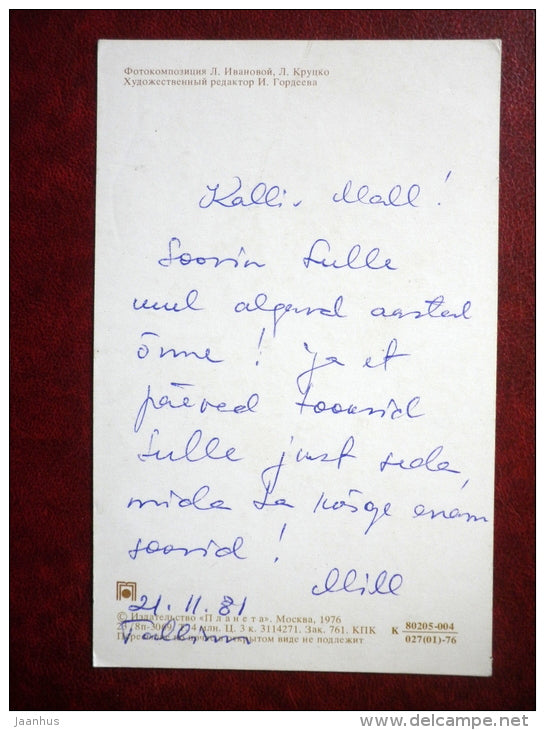 Фотокомпозиция Л. Ивановой, Л. Круцко
Художественный редактор И. Гордеева
Kalli Mall!
Soovin Sulle
uul algavd aastal
õnne! Ja et
päevad tooksid
Sulle just seda,
mida Sa kõige enam
soovid!
Mill
21. 11. 81
Tallinn
© Издательство «Планета». Москва, 1976
4 млн. Ц. 3 к. 3114271. Зак. 761. КПК
К 80205-004
027(01)-76
открытом виде не подлежит
jaanhus
www.delcampe.net